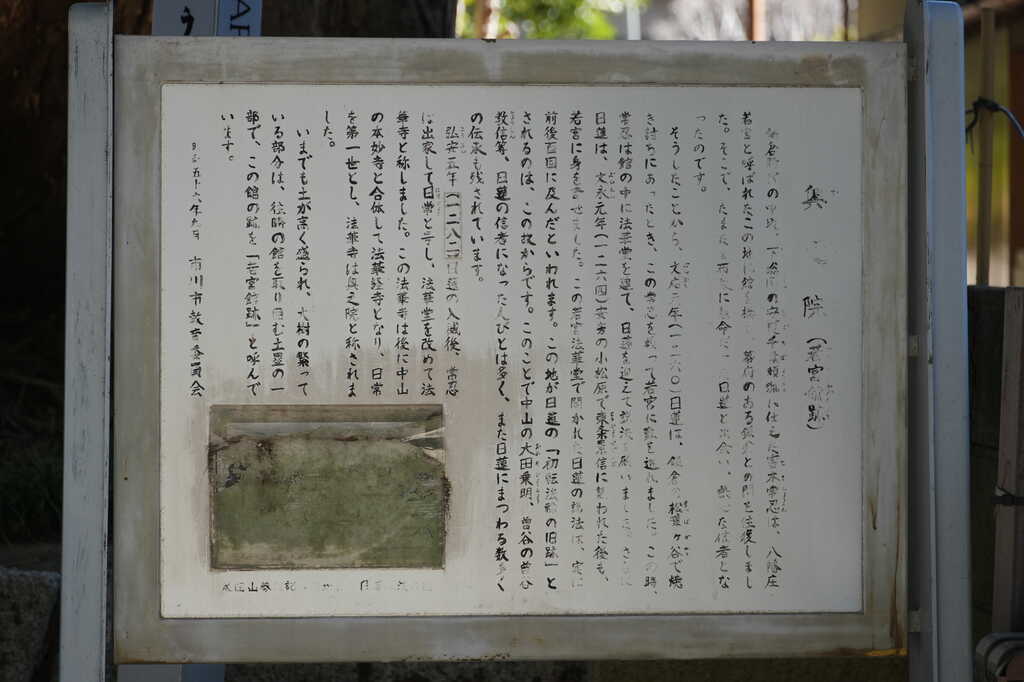 奥 院（若宮館跡）
の 下総 の 千 頼胤に仕えた富木常忍は、八幡庄
若宮と呼ばれたこの地に館を構え、幕府のある鎌倉との間を往復しまし
た。そこで、たまたま に 日蓮と出会い、 信者とな
ったのです。
そうしたことから、文応元年（一二六〇）日蓮は、鎌倉の松葉ヶ谷で焼
き討ちにあったとき、この常忍を頼って若宮に難を逃れました。この時、
常忍は館の中に法華堂を建て、日蓮を迎えて 法を願いました。さらに
日蓮は、文永元年（一二六四）安房の小松原で東条景信に襲われた後も、
若宮に身を寄せました。この若宮法華堂で開かれた日蓮の説法は、実に
前後百回に及んだといわれます。この地が日蓮の「初転法輪の旧跡」と
されるのは、この故からです。このことで中山の大田乗明、曽谷の曽谷
教信等、日蓮の信者になった人びとは多く、また日蓮にまつわる数多く
の伝承も残されています。
弘安五年（一二八二）日蓮の入滅後、常忍
は出家して日常と号し、法華堂を改めて法
華寺と称しました。この法華寺は後に中山
の本妙寺と合体して法華経寺となり、日常
を第一世とし、法華寺は奥之院と称されま
した。
いまでも土が高く盛られ、大樹の繁って
いる部分は、往時の館を取り囲む土塁の一
部で、この館の跡を「若宮館跡」と呼んで
います。
五十 年 月 市川市教育委員会
成田山参